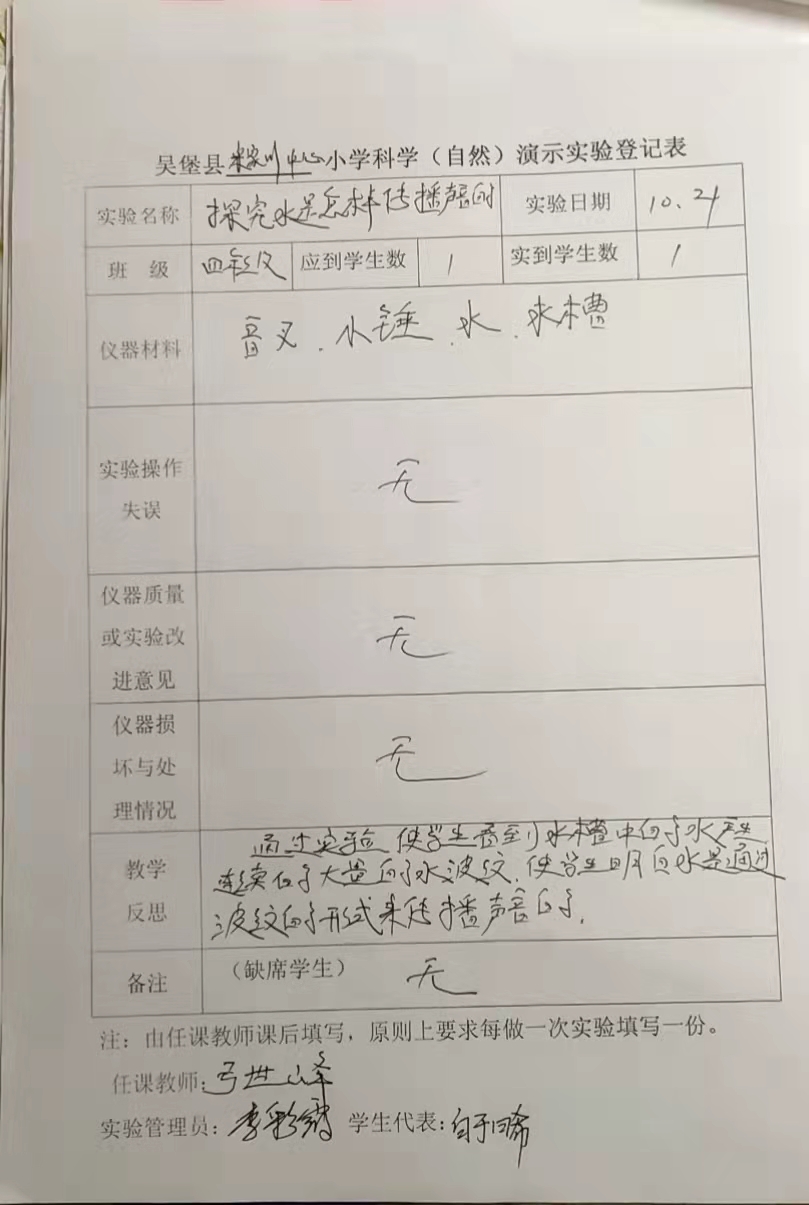 吴堡县宋家川中心小学科学（自然）演示实验登记表
实验名称 探究水是怎样传播声音的 实验日期 10.24
班 级 四年级 应到学生数 1 实到学生数 1
仪器材料 音叉.小锤.水.水槽
实验操作
失误
无
仪器质量
或实验改
进意见
无
仪器损
坏与处
理情况
无
教学
反思
通过实验,使学生看到水槽中的水产生
连续的大量的水波纹,使学生明白水是通过
波纹的形式来传播声音的.
备注 （缺席学生） 无
注：由任课教师课后填写，原则上要求每做一次实验填写一份。
任课教师:弓世峰
实验管理员:李彩霞 学生代表:白子晞